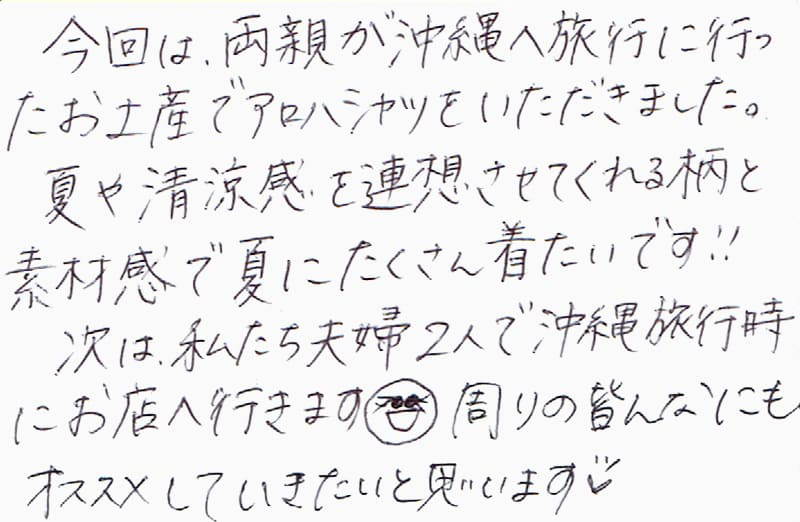 今回は、両親が沖縄へ旅行に行っ
たお土産でアロハシャツをいただきました。
夏や清涼感を連想させてくれる柄と
素材感で夏にたくさん着たいです!!
次は、私たち夫婦2人で沖縄旅行時
にお店へ行きます 周りの皆んなにも
オススメしていきたいと思います♡